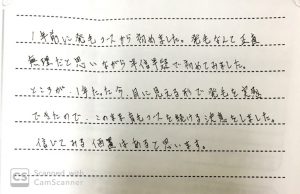 1年前に発毛コースから始めました。発毛なんて正直
無理だと思いながら半信半疑で初めてみました。
ところが、1年たった今、目に見える形で発毛を実感
できたので、このまま発毛コースを続ける決意をしました。
信じてみる価値はあると思います。
CS CamScanner